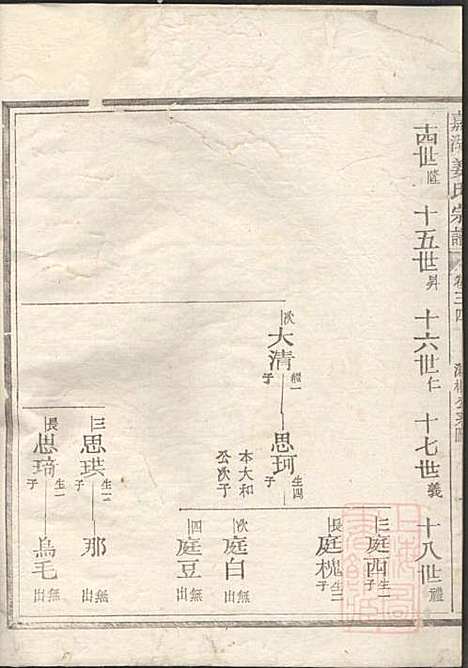 嘉湖姜氏宗譜 卷三四
十四世隆 十五世昇 十六世仁 十七世義 十八世禮
次大清繼一子
思珂生四子
本大和公次子
三庭西生一子
長庭槐生二子
次庭白無出
四庭豆無出
三思珙生一子
那無出
長思琦生一子
烏毛無出